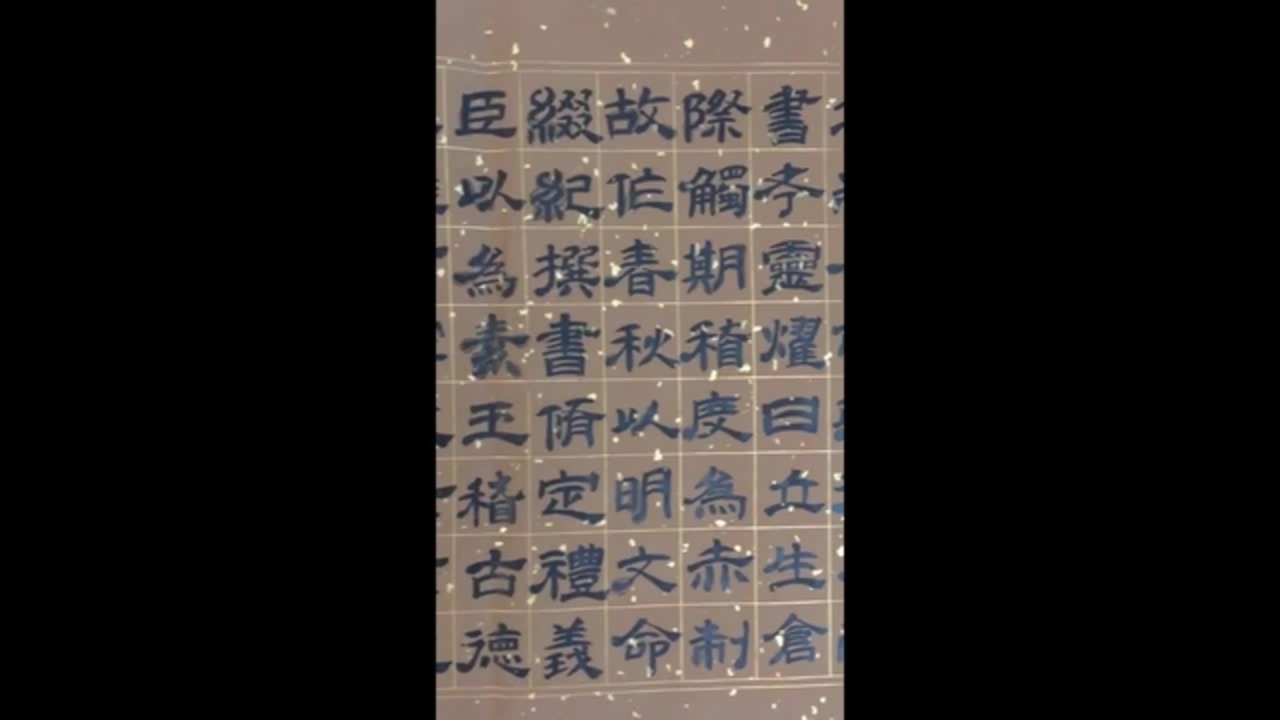 書考靈耀曰丘生倉
際觸期稽度為赤制
故作春秋以明文命
綴紀撰書脩定禮義
臣以為素王稽古德